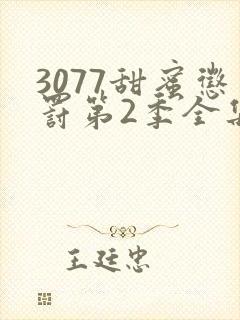 3077甜蜜惩
罚第2季全集
王廷忠